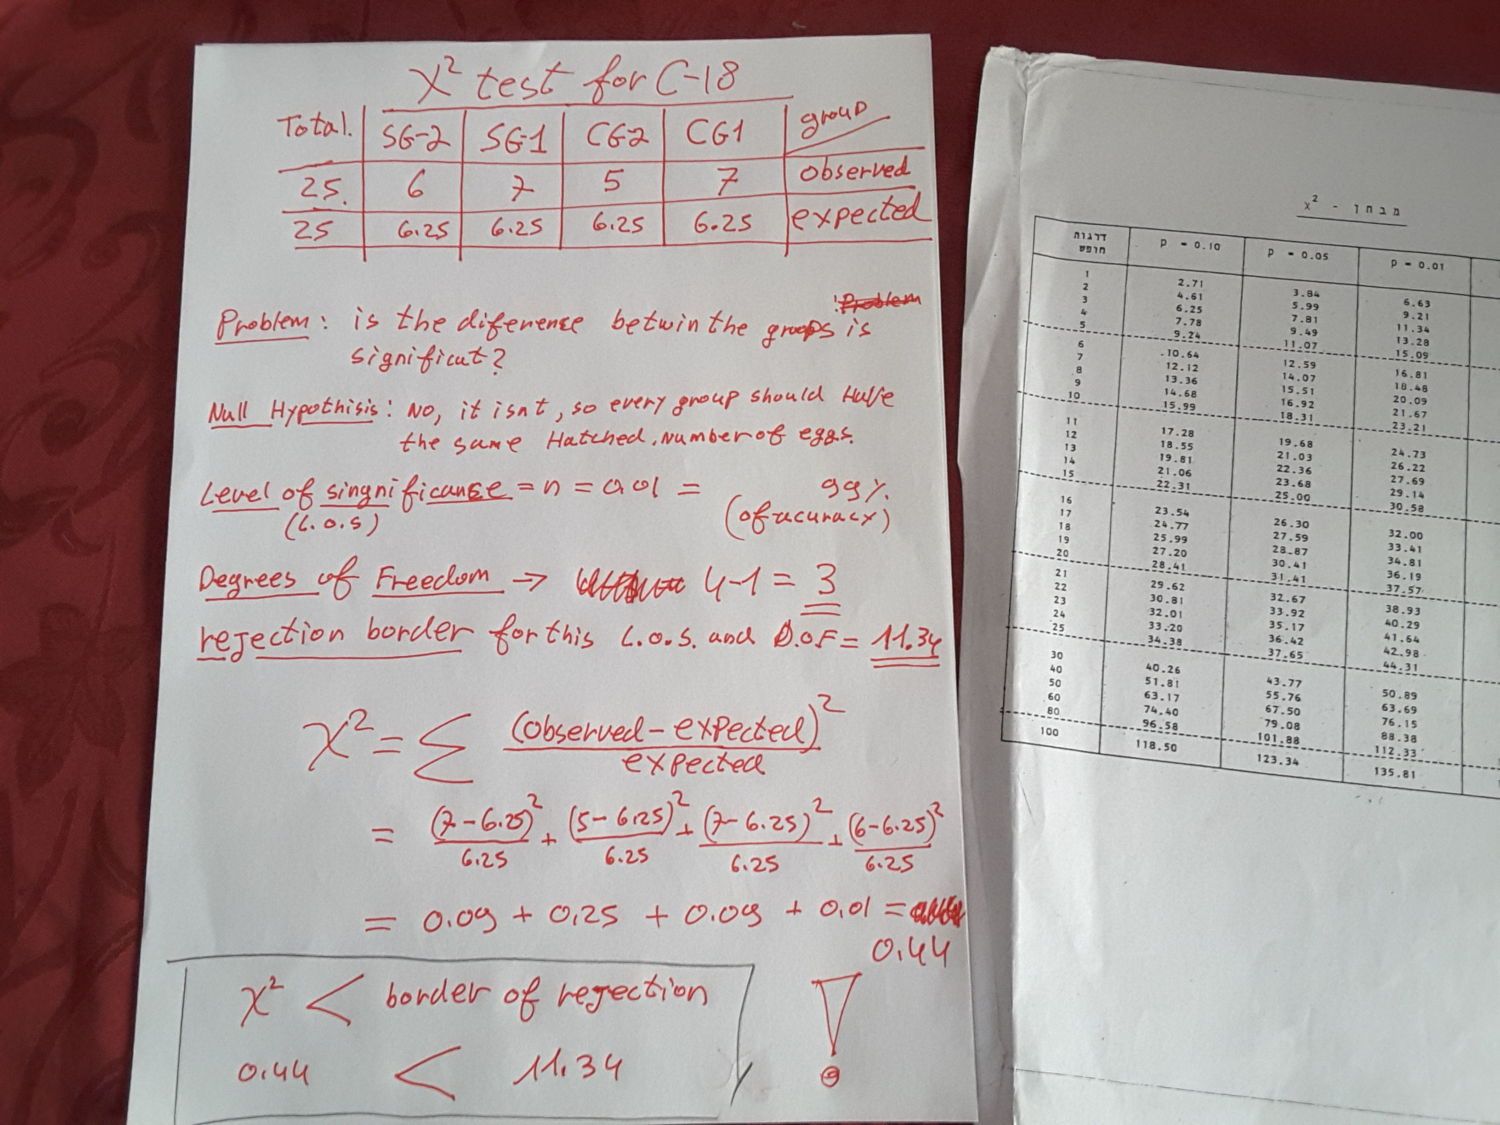 χ² test for C-18
Total. SG-2 SG-1 CG-2 CG1 group
25. 6 7 5 7 observed
25 6.25 6.25 6.25 6.25 expected
Problem: is the diference betwin the groups is
significut?
Null Hypothisis: No, it isnt, so every group should Have
the same Hatched.number of eggs.
Level of singnificanse = n = 0.01 = 99%
(L.O.S) (of acuracy)
Degrees of Freedom → 4-1 = 3
rejection border for this L.O.S. and D.O.F = 11.34
χ² = Σ (observed - expected)² / expected
= (7-6.25)²/6.25 + (5-6.25)²/6.25 + (7-6.25)²/6.25 + (6-6.25)²/6.25
= 0.09 + 0.25 + 0.09 + 0.01 =
0.44
χ² < border of rejection
0.44 < 11.34
!
מבחן - x²
דרגות חופש P = 0.10 P = 0.05 P = 0.01
1 2.71 3.84 6.63
2 4.61 5.99 9.21
3 6.25 7.81 11.34
4 7.78 9.49 13.28
5 9.24 11.07 15.09
6 10.64 12.59 16.81
7 12.12 14.07 18.48
8 13.36 15.51 20.09
9 14.68 16.92 21.67
10 15.99 18.31 23.21
11 17.28 19.68 24.73
12 18.55 21.03 26.22
13 19.81 22.36 27.69
14 21.06 23.68 29.14
15 22.31 25.00 30.58
16 23.54 26.30 32.00
17 24.77 27.59 33.41
18 25.99 28.87 34.81
19 27.20 30.41 36.19
20 28.41 31.41 37.57
21 29.62 32.67 38.93
22 30.81 33.92 40.29
23 32.01 35.17 41.64
24 33.20 36.42 42.98
25 34.38 37.65 44.31
30 40.26 43.77 50.89
40 51.81 55.76 63.69
50 63.17 67.50 76.15
60 74.40 79.08 88.38
80 96.58 101.88 112.33
100 118.50 123.34 135.81